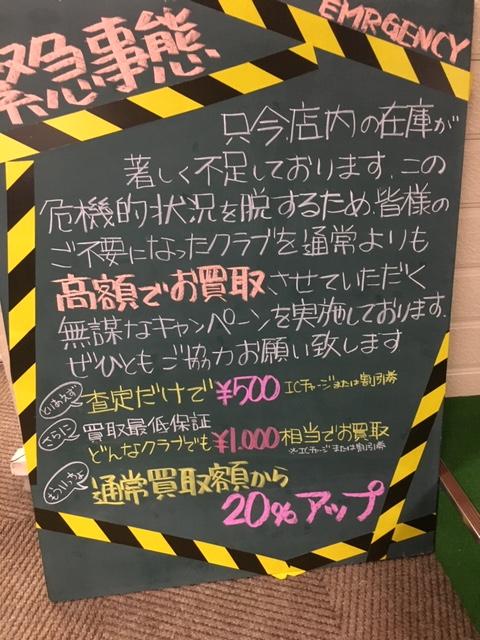 緊急事態
EMRGENCY
只今店内の在庫が
著しく不足しております。この
危機的状況を脱するため、皆様の
ご不要になったクラブを通常よりも
高額でお買取させていただく
無謀なキャンペーンを実施しております。
ぜひともご協力お願い致します
とりあえず 査定だけで ¥500 ICチャージまたは割引券
さらに 買取最低保証
どんなクラブでも ¥1.000 相当でお買取
※ICチャージまたは割引券
もういっちょ 通常買取額から
20%アップ